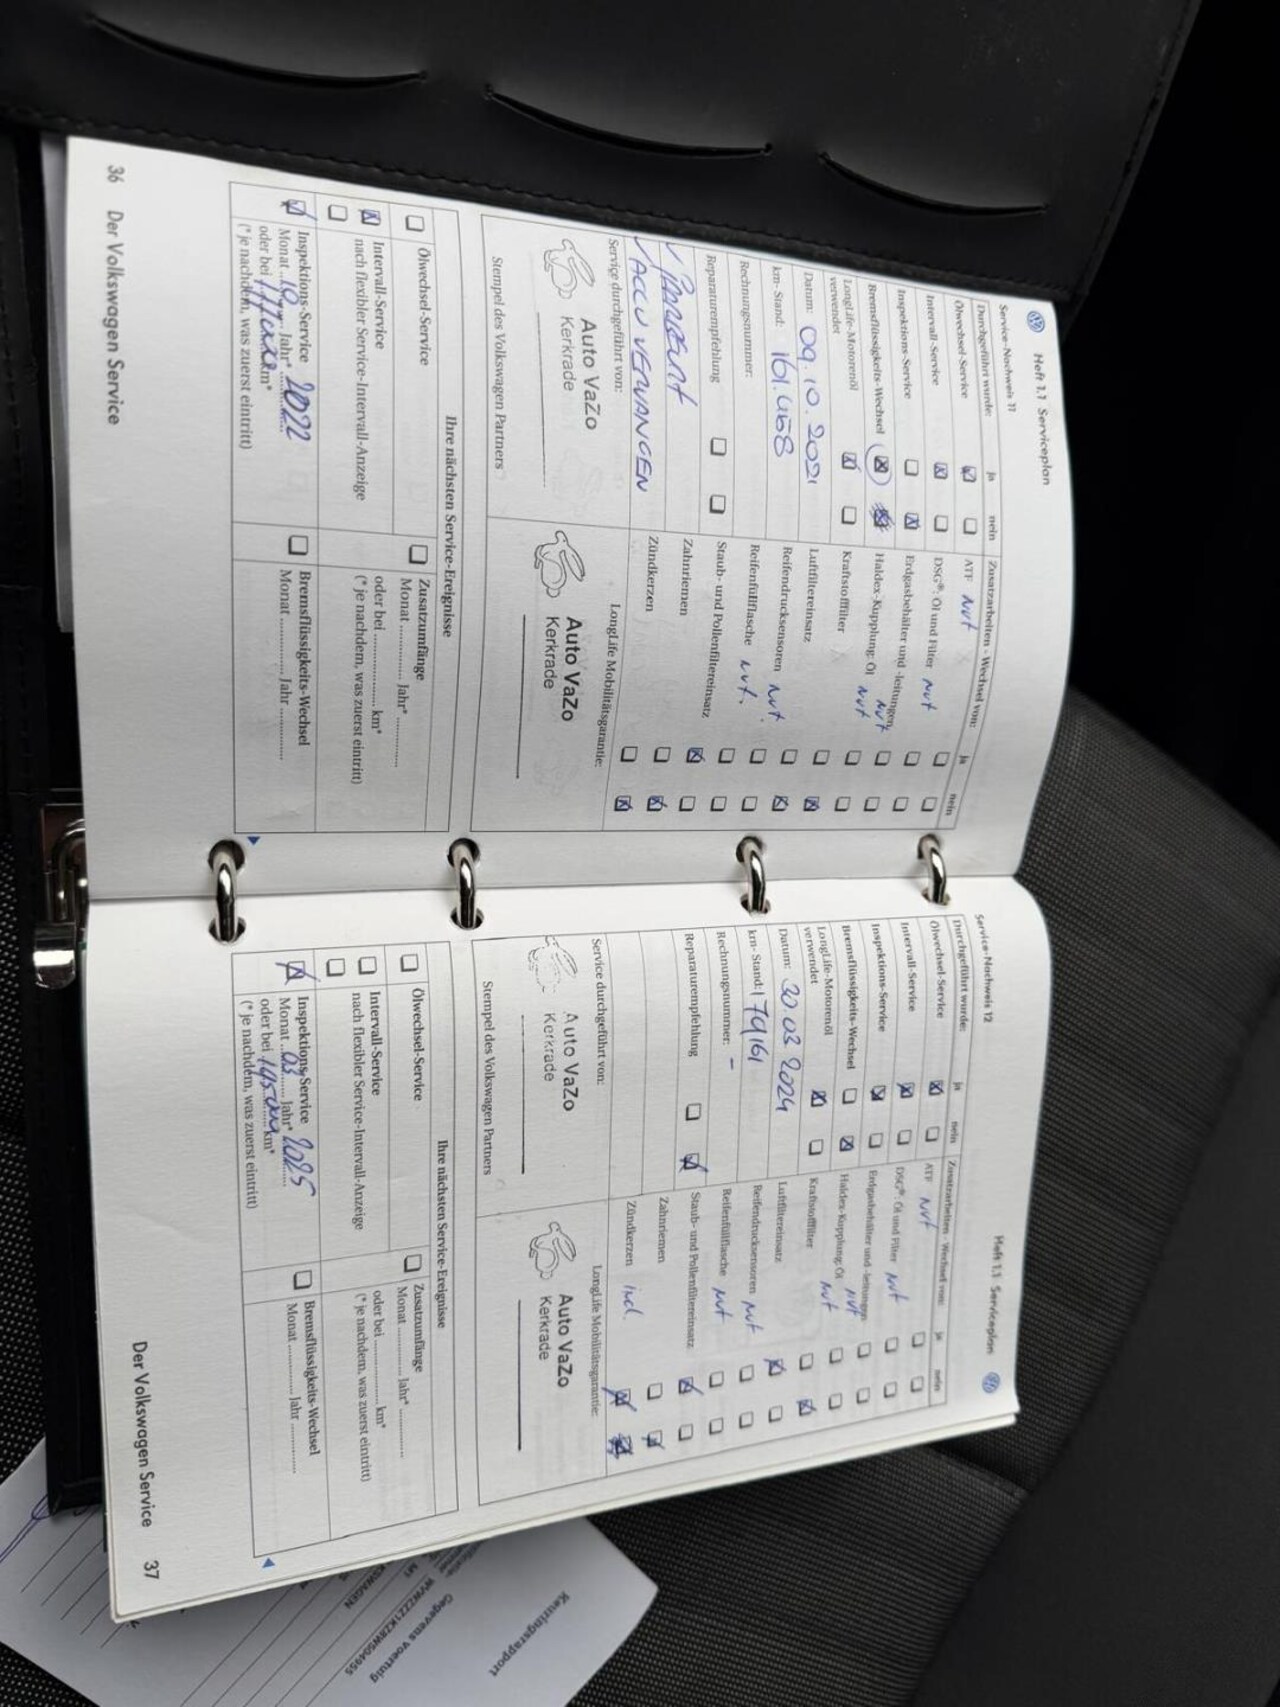 Heft 1.1 Serviceplan
Service-Nachweis 11
Durchgeführt wurde: ja nein
Ölwechsel-Service
Intervall-Service
Inspektions-Service
Bremsflüssigkeits-Wechsel
LongLife-Motorenöl
verwendet
Datum: 09.10.2021
km-Stand: 161.458
Rechnungsnummer:
Reparaturempfehlung
ACCU VERVANGEN
Service durchgeführt von:
Auto VaZo
Kerkrade
Stempel des Volkswagen Partners
Zusatzarbeiten - Wechsel von: ja nein
ATF nvt
DSG®: Öl und Filter nvt
Erdgasbehälter und -leitungen nvt
Haldex-Kupplung: Öl nvt
Kraftstofffilter
Luftfiltereinsatz
Reifendrucksensoren nvt.
Reifenfüllflasche nvt.
Staub- und Pollenfiltereinsatz
Zahnriemen
Zündkerzen
LongLife Mobilitätsgarantie:
Auto VaZo
Kerkrade
Ihre nächsten Service-Ereignisse
Ölwechsel-Service
Intervall-Service
nach flexibler Service-Intervall-Anzeige
Inspektions-Service
Monat 10 Jahr* 2022
oder bei km*
(* je nachdem, was zuerst eintritt)
Zusatzumfänge
Monat Jahr*
oder bei km*
(* je nachdem, was zuerst eintritt)
Bremsflüssigkeits-Wechsel
Monat Jahr
36 Der Volkswagen Service
Heft 1.1 Serviceplan
Service-Nachweis 12
Durchgeführt wurde: ja nein
Ölwechsel-Service
Intervall-Service
Inspektions-Service
Bremsflüssigkeits-Wechsel
LongLife-Motorenöl
verwendet
Datum: 30.03 2024
km-Stand: 179161
Rechnungsnummer: -
Reparaturempfehlung
Service durchgeführt von:
Auto VaZo
Kerkrade
Stempel des Volkswagen Partners
Zusatzarbeiten - Wechsel von: ja nein
ATF nvt
DSG®: Öl und Filter nvt
Erdgasbehälter und -leitungen nvt
Haldex-Kupplung: Öl nvt
Kraftstofffilter
Luftfiltereinsatz
Reifendrucksensoren nvt
Reifenfüllflasche nvt
Staub- und Pollenfiltereinsatz
Zahnriemen
Zündkerzen incl.
LongLife Mobilitätsgarantie:
Auto VaZo
Kerkrade
Ihre nächsten Service-Ereignisse
Ölwechsel-Service
Intervall-Service
nach flexibler Service-Intervall-Anzeige
Inspektions-Service
Monat 03 Jahr* 2025
oder bei km*
(* je nachdem, was zuerst eintritt)
Zusatzumfänge
Monat Jahr*
oder bei km*
(* je nachdem, was zuerst eintritt)
Bremsflüssigkeits-Wechsel
Monat Jahr
Der Volkswagen Service 37
Keuringsrapport
Gegevens voertuig
WVWZZZ1KZ8W504955